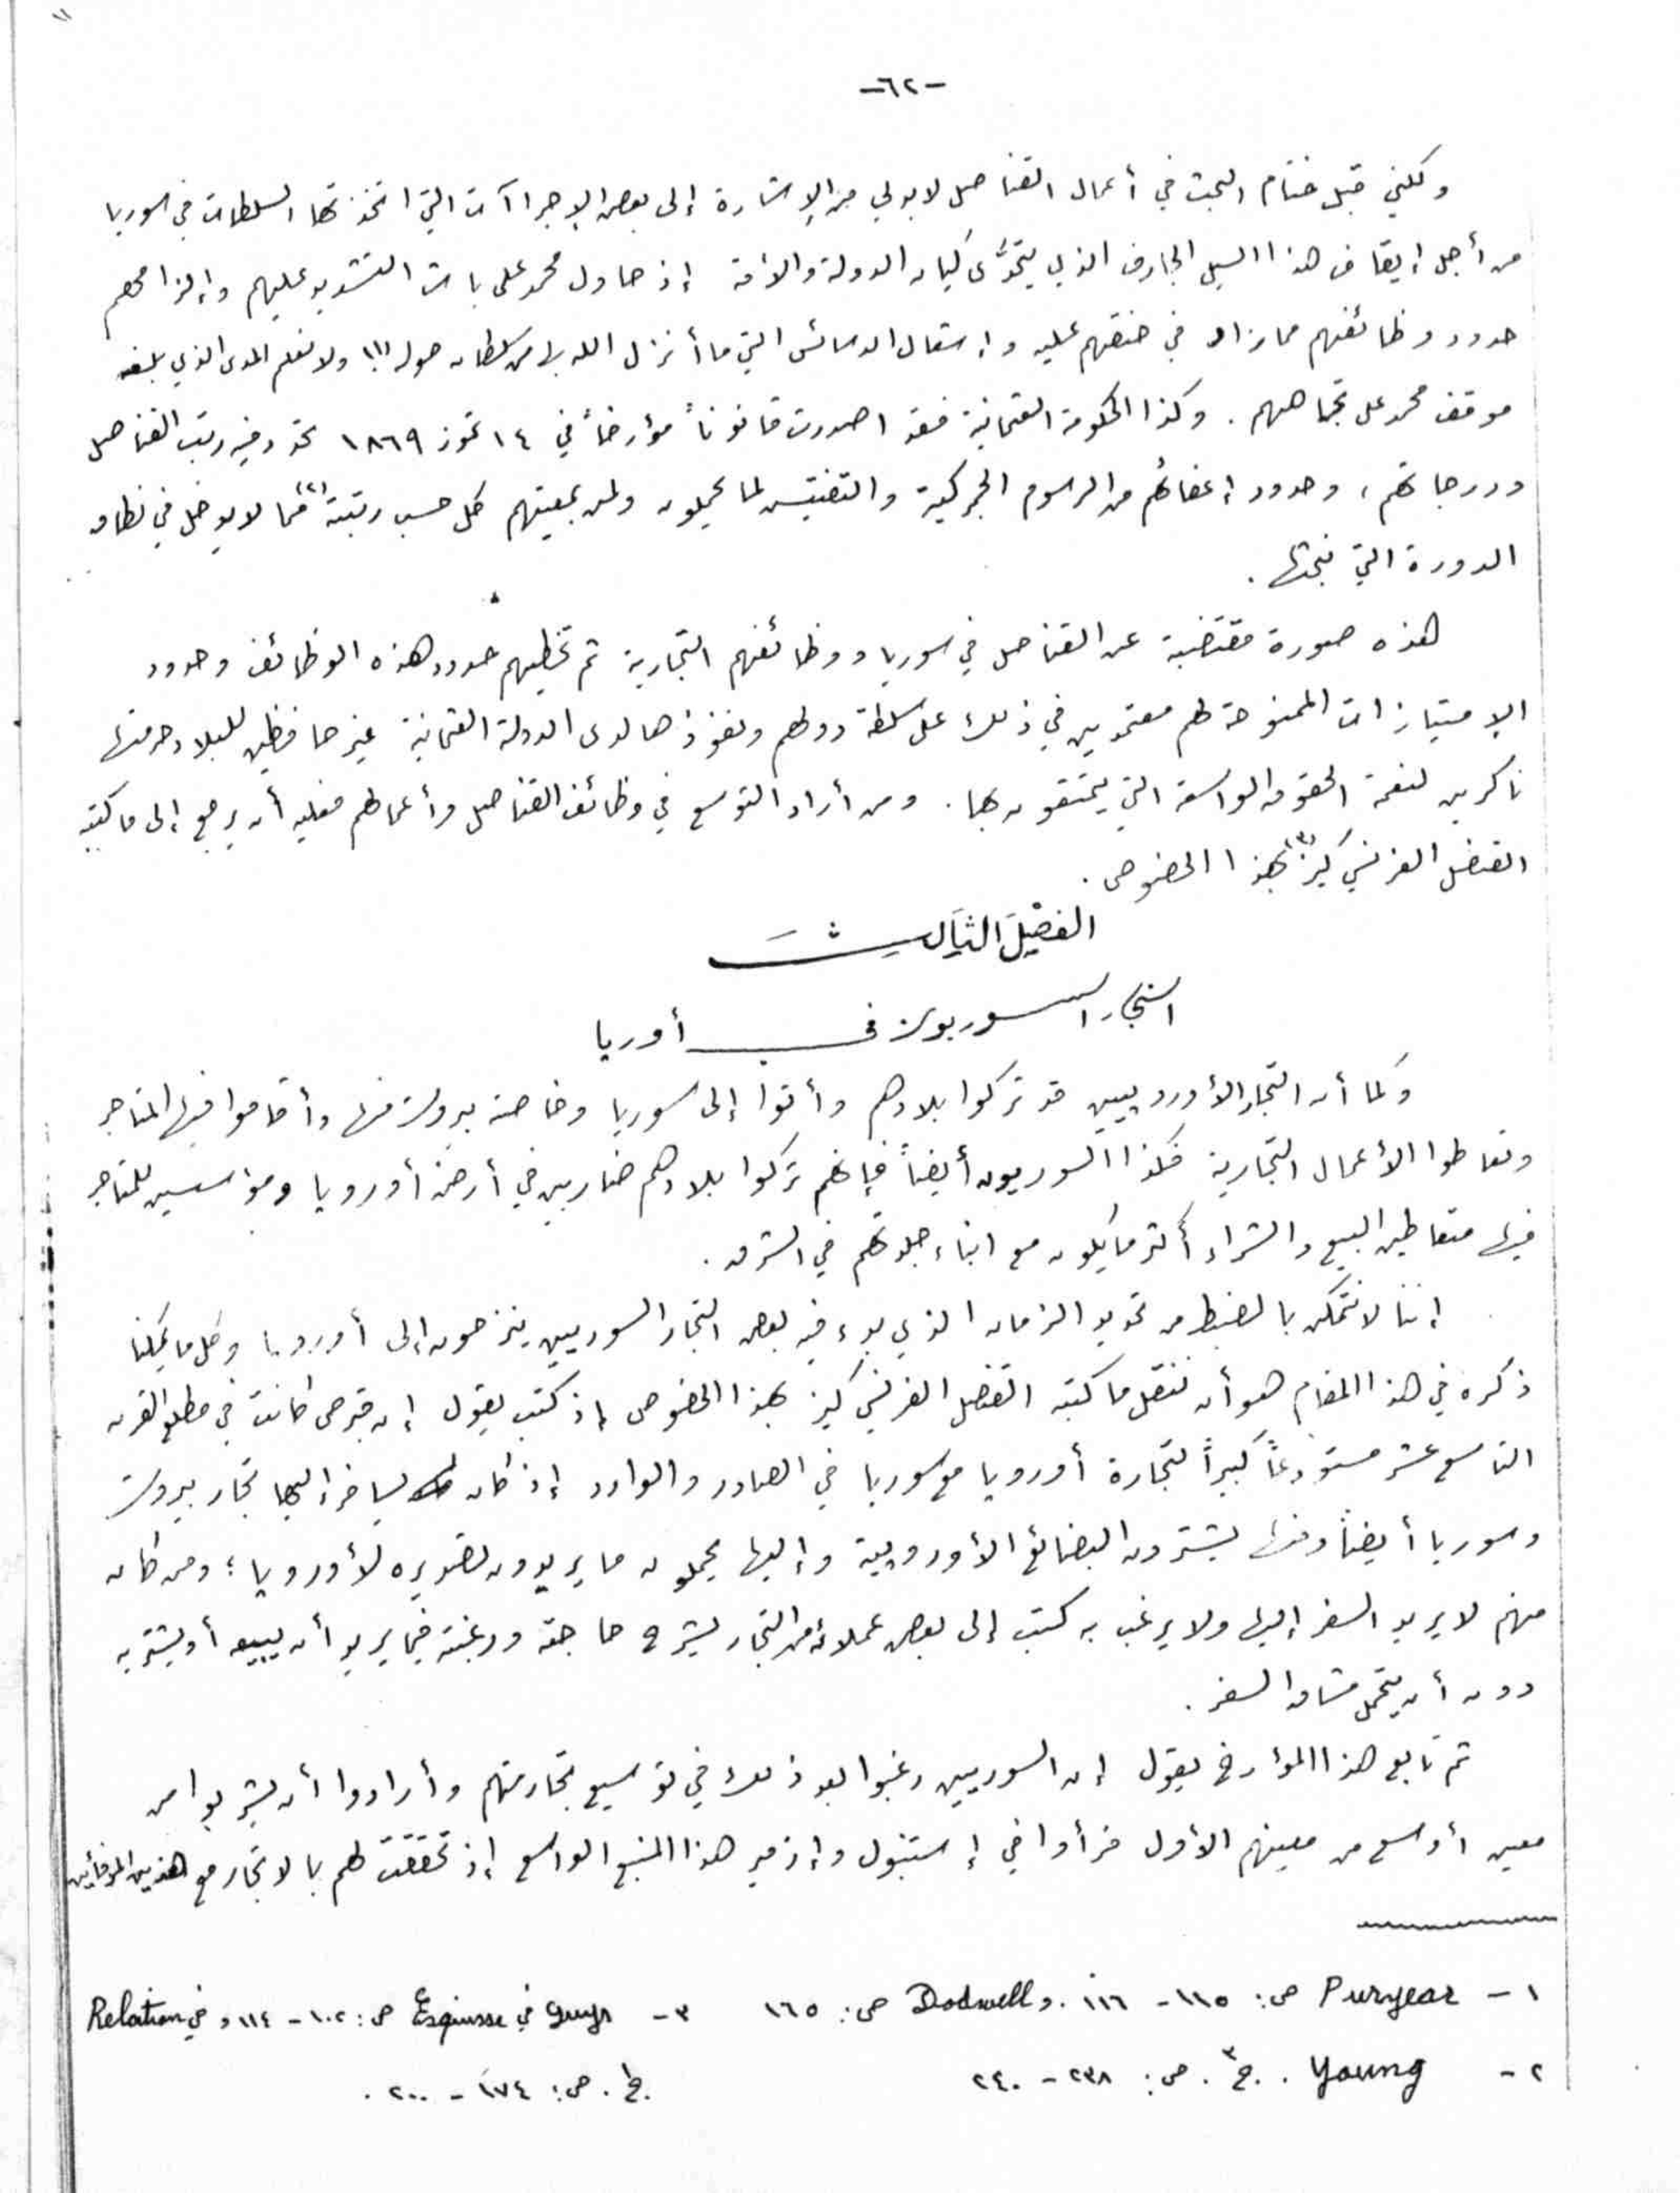 -٦٢-
ولكني قبل ختام البحث في أعمال القناصل لابد لي من الإشارة إلى بعض الإجراآت التي اتخذتها السلطات في سوريا
من أجل إيقاف هذا السيل الجارف الذي يتحدَّى كيان الدولة والأمة إذ حاول محمد علي باشا التشديد عليهم وإلزامهم
حدود وظائفهم مما زاد في حنقهم عليه وإستعمال الدسائس التي ما أنزل الله بها من سلطان حوله (١) ولا نعلم المدى الذي بلغه
موقف محمد علي تجاههم . وكذا الحكومة العثمانية فقد اصدرت قانوناً مؤرخاً في ١٤ تموز ١٨٦٩ تحدد فيه رتب القناصل
ودرجاتهم ، وحدود إعفائهم من الرسوم الجمركية والتفتيش لما يحملون ولمن بمعيتهم كل حسب رتبته (٢) مما لا يدخل في نطاق
الدورة التي نبحثها .
هذه صورة مقتضبة عن القناصل في سوريا ووظائفهم التجارية ثم تخطيهم حدود هذه الوظائف وحدود
الإمتيازات الممنوحة لهم معتمدين في ذلك على سلطة دولهم ونفوذها لدى الدولة العثمانية غير حافظين للبلاد حرمتها
ناكرين لنعمة الحقوق الواسعة التي يتمتعون بها . ومن أراد التوسع في وظائف القناصل وأعمالهم فعليه أن يرجع إلى ما كتبه
القنصل الفرنسي كيز (٣) بهذا الخصوص .
الفصل الثالث
التجار السوريون في أوربا
وكما أن التجار الأوروبيين قد تركوا بلادهم وأتوا إلى سوريا وخاصة بيروت منها وأقاموا فيها المتاجر
وتعاطوا الأعمال التجارية فكذا السوريون أيضاً فإنهم تركوا بلادهم ضاربين في أرض أوروبا ومؤسسين للمتاجر
فيها متعاطين البيع والشراء أكثر ما يكون مع ابناء جلدتهم في الشرق .
إننا لا نتمكن بالضبط من تحديد الزمان الذي بدء فيه بعض التجار السوريين ينزحون إلى أوروبا وكل ما يمكننا
ذكره في هذا المقام هو أن ننقل ما كتبه القنصل الفرنسي كيز بهذا الخصوص إذ كتب يقول إن قبرص كانت في مطلع القرن
التاسع عشر مستودعاً كبيراً لتجارة أوروبا مع سوريا في الصادر والوارد إذ كان يسافر إليها تجار بيروت
وسوريا أيضاً ومنها يشترون البضائع الأوروبية وإليها يحملون ما يريدون تصديره لأوروبا ؛ ومن كان
منهم لا يريد السفر إليها ولا يرغب به كتب إلى بعض عملائه من التجار يشرح حاجته ورغبته فيما يريد أن يبيعه أو يشتريه
دون أن يتحمل مشاق السفر .
ثم تابع هذا المؤرخ يقول إن السوريين رغبوا بعد ذلك في توسيع تجارتهم وأرادوا أن يشربوا من
معين أوسع من معينهم الأول فرأوا في إستنبول وإزمير هذا المنبع الواسع إذ تحققت لهم بالاتجار مع هذين المرفأين
١ - Puryear ص: ١١٥ - ١١٦ . و Dodwell ص: ١٦٥
٣ - Guys في Esquisse ص: ١٠٢ - ١١٤ و في Relation
ج١ . ص: ١٧٤ - ٢٠٠ .
٢ - Young . ج٣ . ص: ٢٣٨ - ٢٤٠